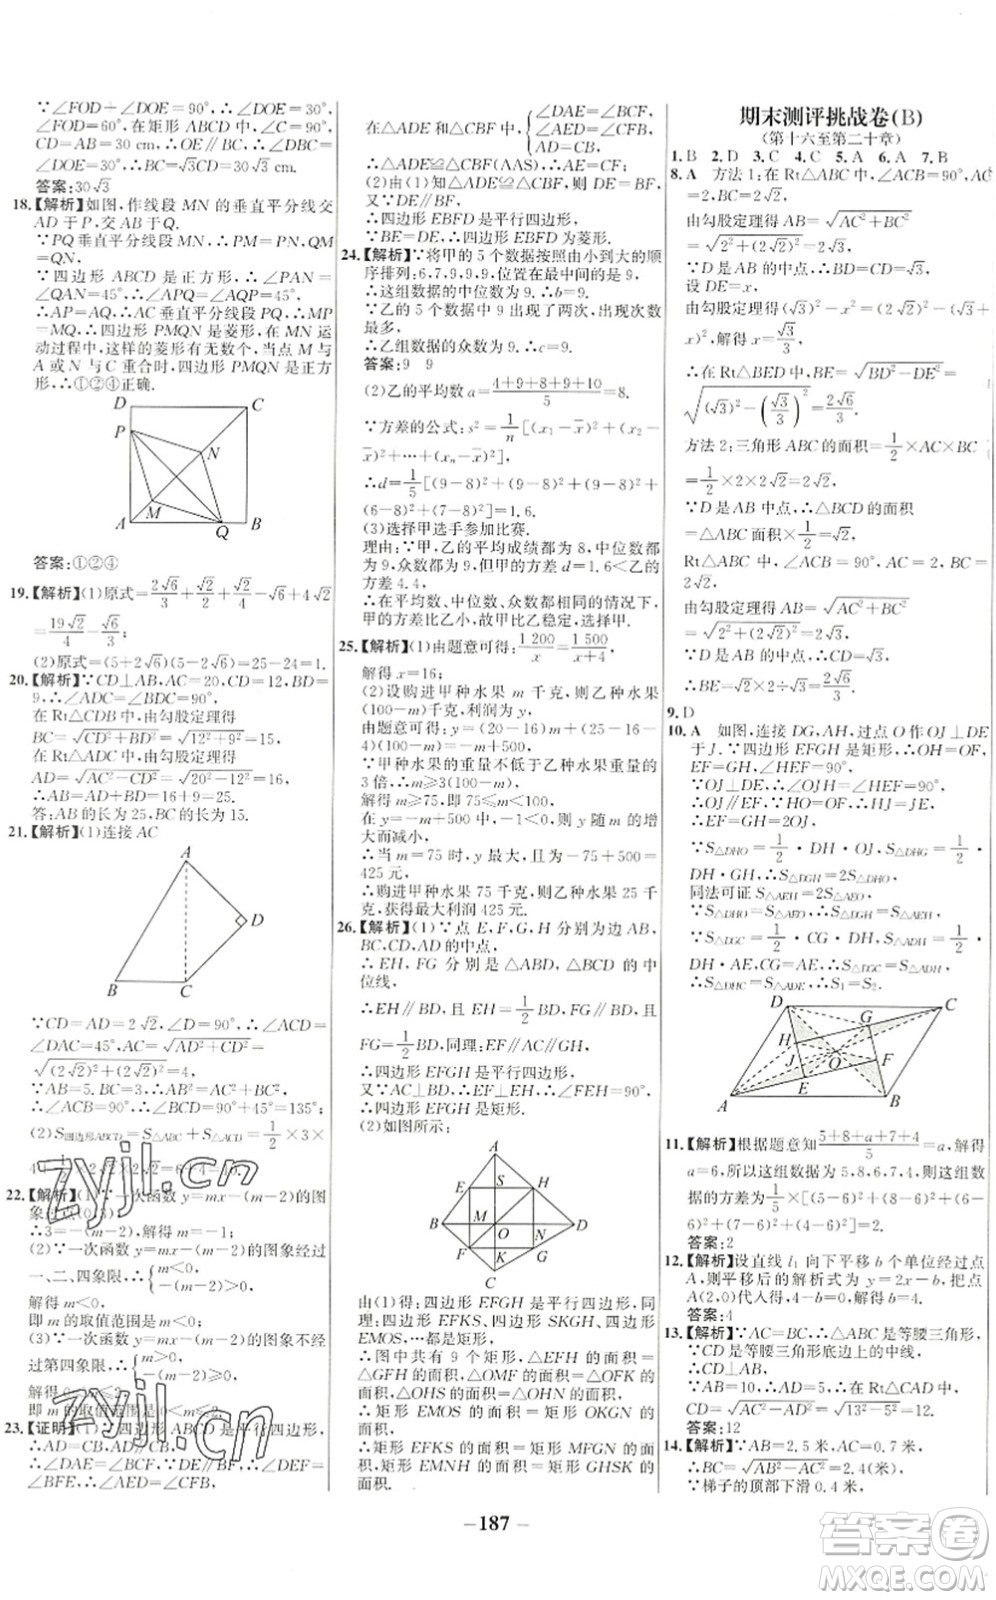 ∵∠FOD+∠DOE=90°,∴∠DOE=30°,
∠FOD=60°,在矩形 ABCD 中,∵∠FDO=60°,
CD=AB=30 cm.
∵∠DOE=30°
答案:30√3
18.【解析】如图,作线段 MN 的垂直平分线交
AD 于 P,交 AB 于 Q.
∵PQ 垂直平分线段 MN,∴PM=PN,QM
=QN,
∵四边形 ABCD 是正方形,∴∠PAN=
∠QAN=45°,∴∠APQ=∠AQP=45°,
∴AP=AQ,∴AC 垂直平分线段 PQ,∴MP
=MQ,∴四边形 PMQN 是菱形,在 MN 运
动过程中,这样的菱形有无数个,当点 M 与
A 或 N 与 C 重合时,四边形 PMQN 是正方
形,∴①②④正确.
D C
P
N
M
A Q B
答案:①②④
19.【解析】(1)原式=2√6/3+√2/2+√2/4-√6+4√2
=19√2/4-√6/3;
(2)原式=(5+2√6)(5-2√6)=25-24=1.
20.【解析】∵CD⊥AB,AC=20,CD=12,BD=
9,∴∠ADC=∠BDC=90°.
在 Rt△CDB 中,由勾股定理得
BC=√(CD²+BD²)=√(12²+9²)=15.
在 Rt△ACD 中,由勾股定理得
AD=√(AC²-CD²)=√(20²-12²)=16.
∴AB=AD+BD=16+9=25.
答:AB 的长为 25,BC 的长为 15.
21.【解析】(1)连接 AC
A
D
B C
∵CD=AD=2√2,∠D=90°,∴∠ACD=
∠DAC=45°,∴AC=√(AD²+CD²)=
√((2√2)²+(2√2)²)=4.
∵AB=5,BC=3,∴AB²=AC²+BC²,
∴∠ACB=90°,∴∠BCD=90°+45°=135°;
(2)S四边形ABCD=S△ABC+S△ADC=1/2×3×
22.【解析】(1)∵一次函数 y=mx-(m-2)的图
∴3=-(m-2),解得 m=-1;
(2)∵一次函数 y=mx-(m-2)的图象经过
一、二、四象限,∴{m<0, -(m-2)>0,
解得 m<0,
即 m 的取值范围是 m<0;
(3)∵一次函数 y=mx-(m-2)的图象不经
23.【证明】(1)∵四边形 ABCD 是平行四边形,
∴AD=CB,AD∥CB,
∴∠DAE=∠BCF.∵DE∥BF,∴∠DEF=
∠BFE,∴∠AED=∠CFB,
在△ADE 和△CBF 中,{∠DAE=∠BCF, ∠AED=∠CFB, AD=CB,
∴△ADE≌△CBF(AAS),∴AE=CF;
(2)由(1)知△ADE≌△CBF,则 DE=BF,
又∵DE∥BF,
∴四边形 EBFD 是平行四边形.
∵BE=DE,∴四边形 EBFD 为菱形.
24.【解析】∵将甲的 5 个数据按照由小到大的顺
序排列:6,7,9,9,9,位置在最中间的是 9,
∴这组数据的中位数为 9.∴b=9.
∵乙的 5 个数据中 9 出现了两次,出现次数
最多,
∴乙组数据的众数为 9.∴c=9.
答案:9 9
(2)乙的平均数 a=(4+9+8+9+10)/5=8.
∵方差的公式:s²=1/n[(x₁-x̄)²+(x₂-
x̄)²+…+(xₙ-x̄)²]
∴d=1/5[(9-8)²+(6-8)²+(7-8)²+(9-
8)²+(9-8)²]=1.6.
(3)选择甲选手参加比赛.
理由:∵甲,乙的平均成绩都为 8,中位数都
为 9,众数都为 9,但甲的方差 d=1.6<乙的
方差 4.4,
∴在平均数、中位数、众数都相同的情况下,
甲的方差比乙小,甲比乙稳定,选择甲.
25.【解析】(1)由题意可得:1 200/x=1 500/(x+4),
解得 x=16;
(2)设购进甲种水果 m 千克,则乙种水果
(100-m)千克,利润为 y,
由题意可得:y=(20-16)m+(25-16-
4)(100-m)=-m+500,
∵甲种水果的重量不低于乙种水果重量的
3 倍,∴m≥3(100-m),
解得 m≥75,即 75≤m<100,
在 y=-m+500 中,-1<0,则 y 随 m 的增
大而减小,
∴当 m=75 时,y 最大,且为-75+500=
425 元,
∴购进甲种水果 75 千克,则乙种水果 25 千
克,获得最大利润 425 元.
26.【解析】(1)∵点 E,F,G,H 分别为边 AB,
BC,CD,AD 的中点,
∴EH,FG 分别是△ABD,△BCD 的中
位线,
∴EH∥BD,且 EH=1/2BD,FG∥BD,且
FG=1/2BD,同理:EF∥AC∥GH,
∴四边形 EFGH 是平行四边形,
又∵AC⊥BD,∴EF⊥EH,∴∠FEH=90°,
∴四边形 EFGH 是矩形.
(2)如图所示:
A
E S H
M
B O N D
F K G
C
由(1)得:四边形 EFGH 是平行四边形,同
理:四边形 EFKS、四边形 SKGH、四边形
EMOS、…都是矩形,
∴图中共有 9 个矩形,△EFH 的面积=
△GFH 的面积,△OMF 的面积=△OFK 的
面积,△OHS 的面积=△OHN 的面积,
∴矩形 EMOS 的面积=矩形 OKGN 的
面积,
∴矩形 EFKS 的面积=矩形 MFGN 的面
积,矩形 EMNH 的面积=矩形 GHSK 的
面积.
期末测评挑战卷(B)
(第十六至第二十章)
1.B 2.D 3.C 4.C 5.A 6.A 7.B
8.A 方法 1:在 Rt△ABC 中,∠ACB=90°,AC
=2,BC=2√2,
由勾股定理得 AB=√(AC²+BC²)
=√(2²+(2√2)²)=2√3.
∵D 是 AB 中点,∴AD=BD=√3,
设 DE=x,
由勾股定理得(√3)²-x²=(2√2)²-(√3+
x)²,解得 x=√3/3.
∴在 Rt△BED 中,BE=√(BD²-DE²)=
√((√3)²-(√3/3)²)=2√6/3.
方法 2:三角形 ABC 的面积=1/2×AC×BC
=1/2×2×2√2=2√2,
∵D 是 AB 中点,∴△BCD 的面积
=△ABC 面积×1/2=√2,
Rt△ABC 中,∠ACB=90°,AC=2,BC=
2√2,
由勾股定理得 AB=√(AC²+BC²)
=√(2²+(2√2)²)=2√3.
∵D 是 AB 中点,∴CD=√3,
∴BE=√2×2÷√3=2√6/3.
9.D
10.A 如图,连接 DG,AH,过点 O 作 OJ⊥DE
于 J.∵四边形 EFGH 是矩形,∴OH=OF,
EF=GH,∠HEF=90°,
∵OJ⊥DE,∴∠OJH=∠HEF=90°,
∴OJ∥EF,∵HO=OF,∴HJ=JE,
∴EF=GH=2OJ,
∵S△DHO=1/2·DH·OJ,S△DGH=1/2·
DH·GH,∴S△DGH=2S△DHO,
同法可证 S△AEH=2S△AEO,
∵S△DHO=S△AEO,∴S△DGH=S△AEH,
∵S△DGC=1/2·CG·DH,S△ADH=1/2·
DH·AE,CG=AE,∴S△DGC=S△ADH,
∴S△DHC=S△ADE,∴S₁=S₂.
D C
H G
J O
E F
A B
11.【解析】根据题意知(5+8+a+7+4)/5=a,解得
a=6,所以这组数据为 5,8,6,7,4,则这组数
据的方差为1/5×[(5-6)²+(8-6)²+(6-
6)²+(7-6)²+(4-6)²]=2.
答案:2
12.【解析】设直线 l₁ 向下平移 b 个单位经过点
A,则平移后的解析式为 y=2x-b,把点
A(2,0)代入得,4-b=0,解得 b=4.
答案:4
13.【解析】∵AC=BC,∴△ABC 是等腰三角形,
∵CD 是等腰三角形底边的中线,
∴CD⊥AB.
∵AB=10,∴AD=5,∴在 Rt△CAD 中,
CD=√(AC²-AD²)=√(13²-5²)=12.
答案:12
14.【解析】∵AB=2.5 米,AC=0.7 米,
∴BC=√(AB²-AC²)=2.4(米),
∵梯子的顶部下滑 0.4 米,
— 187 —
zyjl.cn
zyjl.cn
答案圈
MXQE.COM